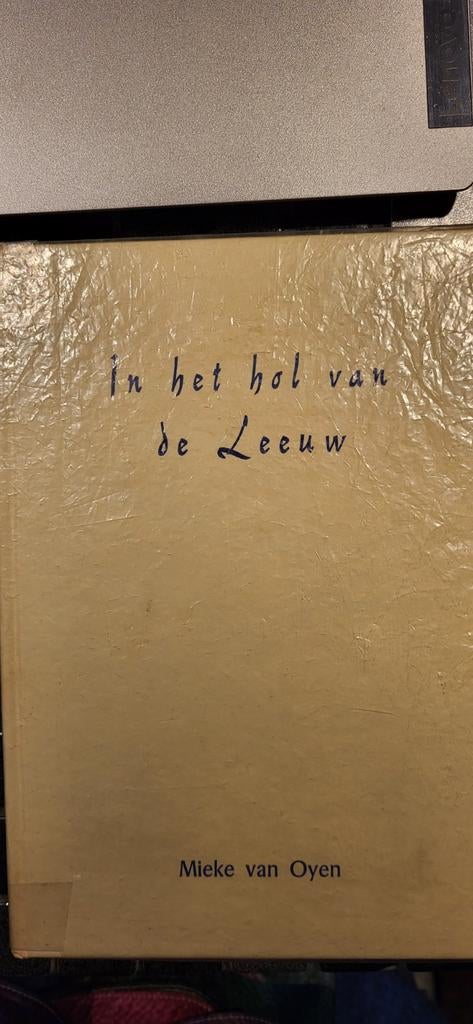 In het hol van
de Leeuw
Mieke van Oyen